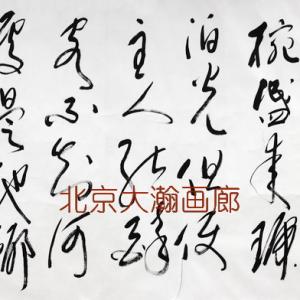 椀盛来琥
珀光但使
主人能醉
客不知何
處是他鄉
北京大瀚画廊